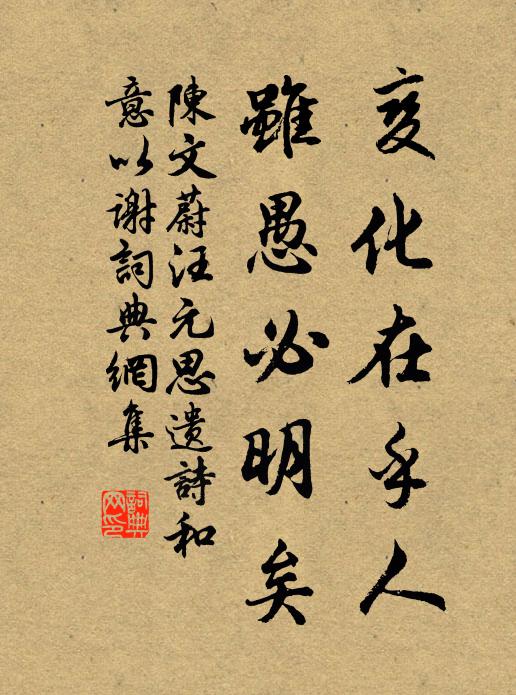 变化在乎人
雖愚必明矣
陳文蔚汪元思遺詩和
意以謝詞典網集
詞典網印